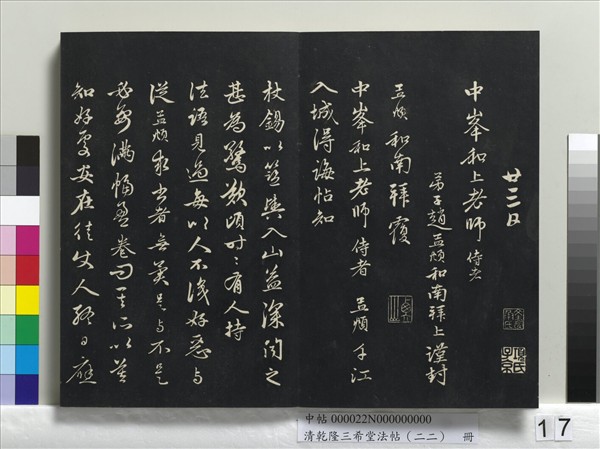 廿三日
中峯和上老師 侍者
弟子趙孟頫和南拜上謹封
孟頫和南拜覆
中峯和上老師 侍者 孟頫手江
入城得誨帖知
杖錫以籃輿入山益深聞之
甚為驚歎頃時〻有人持
法語見過每以人不識好惡与
從孟頫求書者無異是与不是
必要滿幅盈卷問其所以莫
知好處安在徒使人終日應
中帖 000022N000000000
清乾隆三希堂法帖（二二） 冊
17